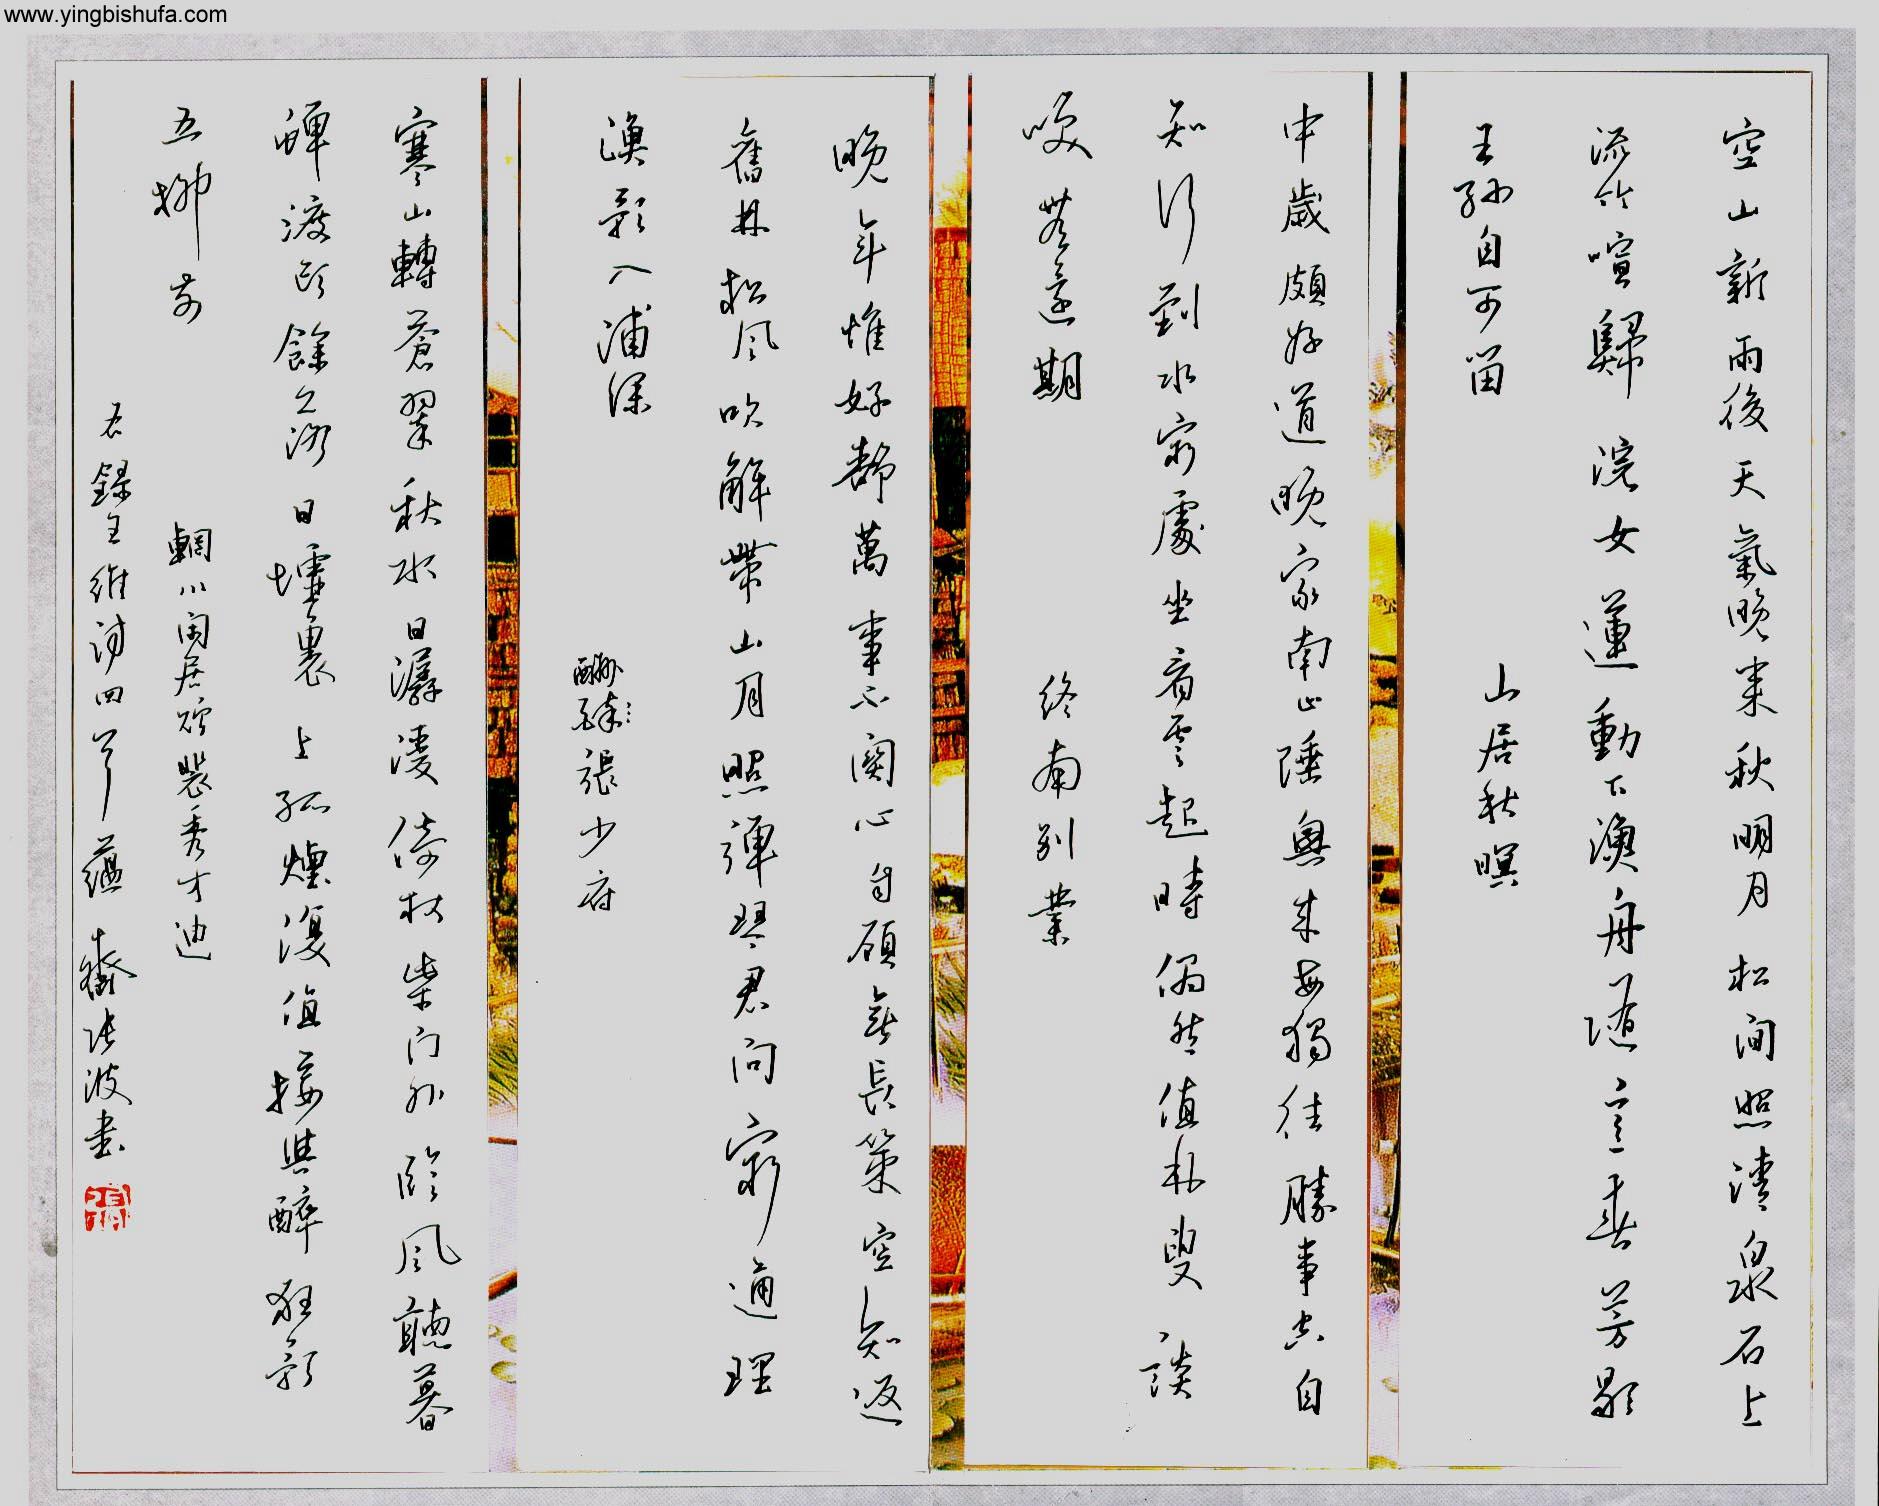 www.yingbishufa.com
空山新雨後天氣晚來秋明月松間照清泉石上
流竹喧歸浣女蓮動下漁舟隨意春芳歇
王孫自可留
山居秋暝
中歲頗好道晚家南山陲興來每獨往勝事空自
知行到水窮處坐看雲起時偶然值林叟談
咲無還期
終南別業
晚年惟好靜萬事不關心自顧無長策空知返
舊林松風吹解帶山月照彈琴君問窮通理
漁歌入浦深
酬張少府
寒山轉蒼翠秋水日潺湲倚杖柴門外臨風聽暮
蟬渡頭餘落日墟裏上孤煙復值接輿醉狂歌
五柳前
輞川閑居贈裴秀才迪
右錄王維詩四首蘊齋張波書